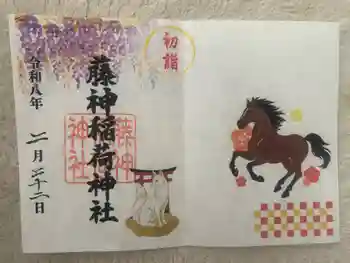 初詣
藤神稲荷神社
藤神
神社
令和八年
二月二十二日